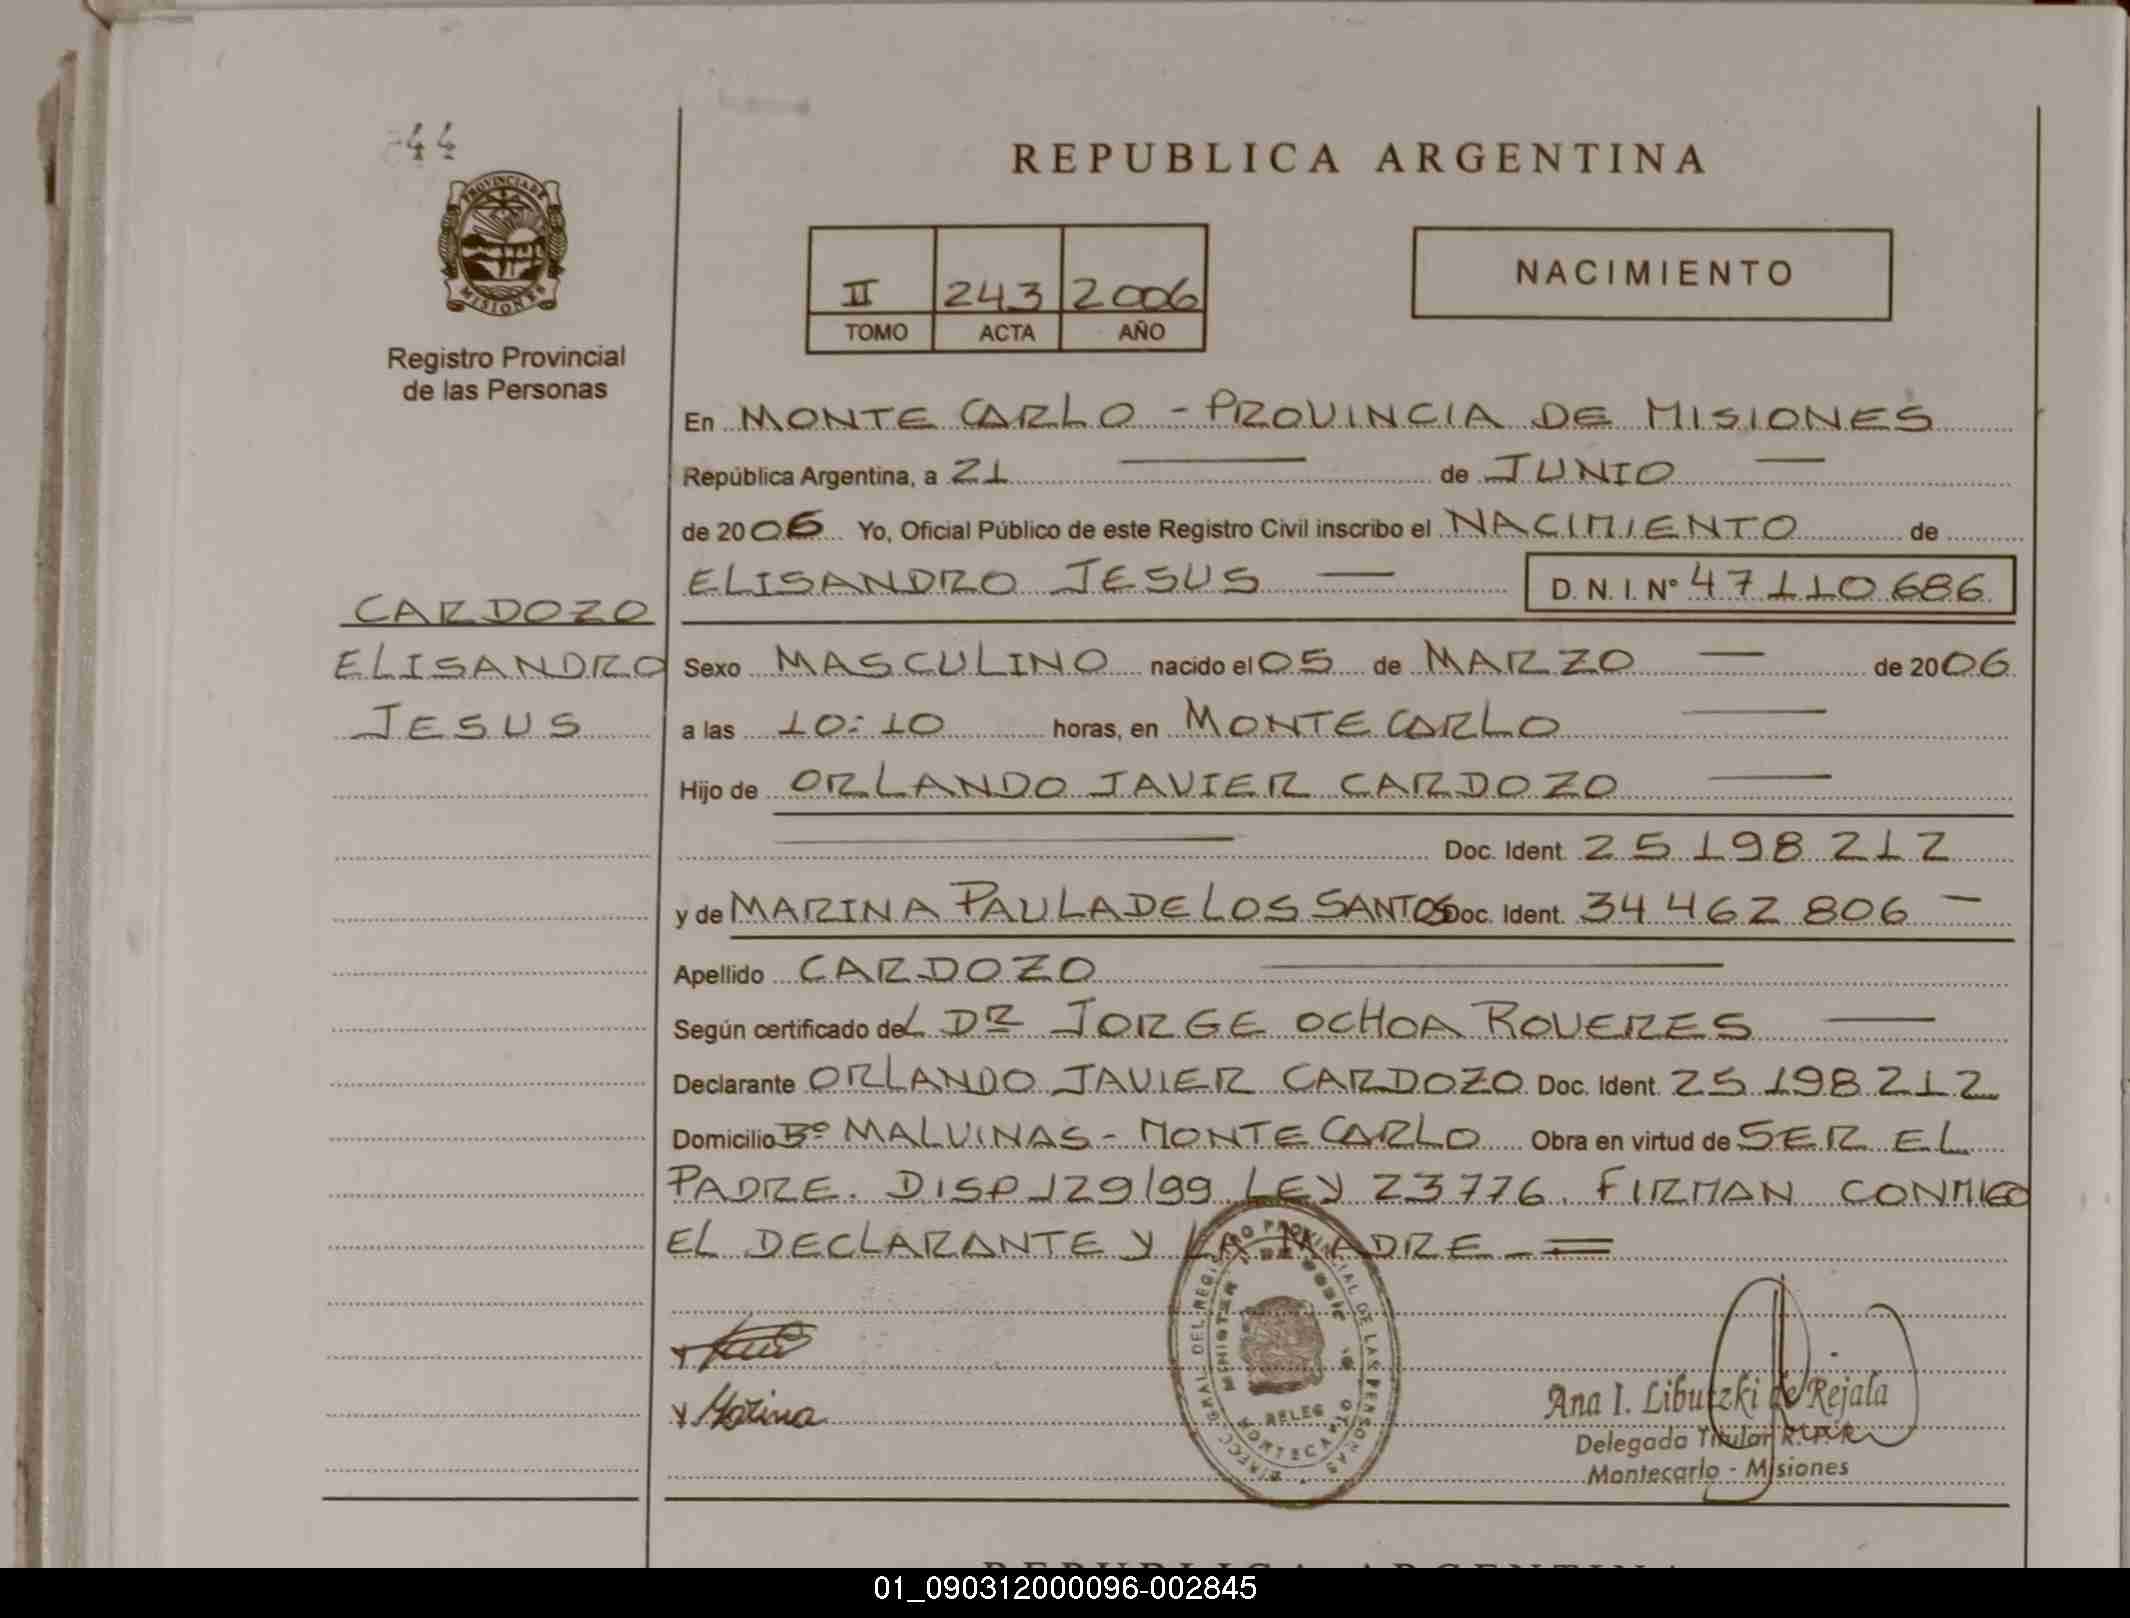 44
PROVINCIA DE
MISIONES
Registro Provincial
de las Personas
REPUBLICA ARGENTINA
II 243 2006
TOMO ACTA AÑO
NACIMIENTO
En MONTE CARLO - PROVINCIA DE MISIONES
República Argentina, a 21 de JUNIO
de 2006 Yo, Oficial Público de este Registro Civil inscribo el NACIMIENTO de
ELISANDRO JESUS D. N. I. Nº 47 110 686
CARDOZO
ELISANDRO
JESUS
Sexo MASCULINO nacido el 05 de MARZO de 2006
a las 10:10 horas, en MONTE CARLO
Hijo de ORLANDO JAVIER CARDOZO
Doc. Ident. 25 198 212
y de MARINA PAULA DE LOS SANTOS Doc. Ident. 34 462 806 -
Apellido CARDOZO
Según certificado del DR JORGE OCHOA ROVERES
Declarante ORLANDO JAVIER CARDOZO Doc. Ident. 25 198 212
Domicilio Bº MALVINAS - MONTE CARLO Obra en virtud de SER EL
PADRE. DISP 129/99 LEY 23776. FIRMAN CONMIGO
EL DECLARANTE Y LA MADRE - =
Marina
DIRECC. GRAL. DEL REGISTRO PROVINCIAL DE LAS PERSONAS
MONTECARLO
Ana I. Libutzki de Rejala
Delegada Titular R.P.P.
Montecarlo - Misiones
REPUBLICA ARGENTINA
01_090312000096-002845